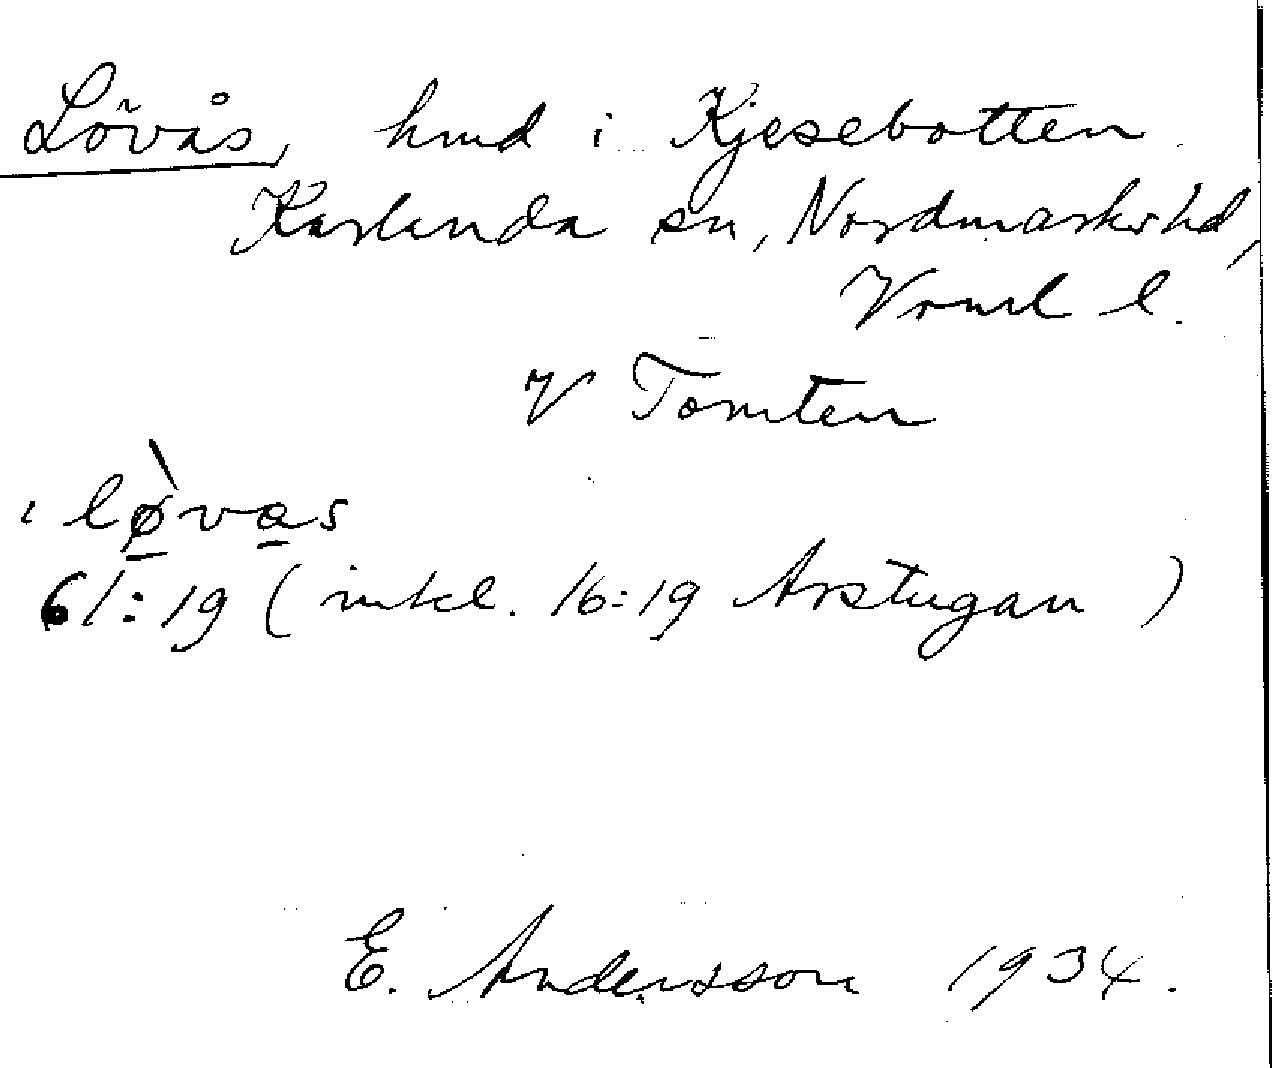 Lövås, hmd i Kjesebotten
Karlanda sn, Nordmarks hd,
Vrml l.
V Tomten
i lø̠̀va̠s
61:19 (inkl. 16:19 Arstugan )
E. Andersson 1934.